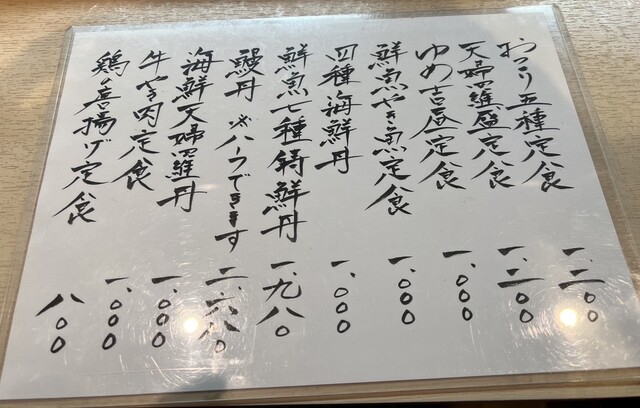 おつくり五種定食 一.二〇〇
天婦羅盛定食 一.二〇〇
ゆめ吉昼定食 一.〇〇〇
鮮魚やき魚定食 一.〇〇〇
四種海鮮丼 一.〇〇〇
鮮魚七種鮮丼 一.九八〇
鰻丼 ※ハーフできます 二.六八〇
海鮮天婦羅丼 一.〇〇〇
牛やき肉定食 一.〇〇〇
鶏唐揚げ定食 八〇〇